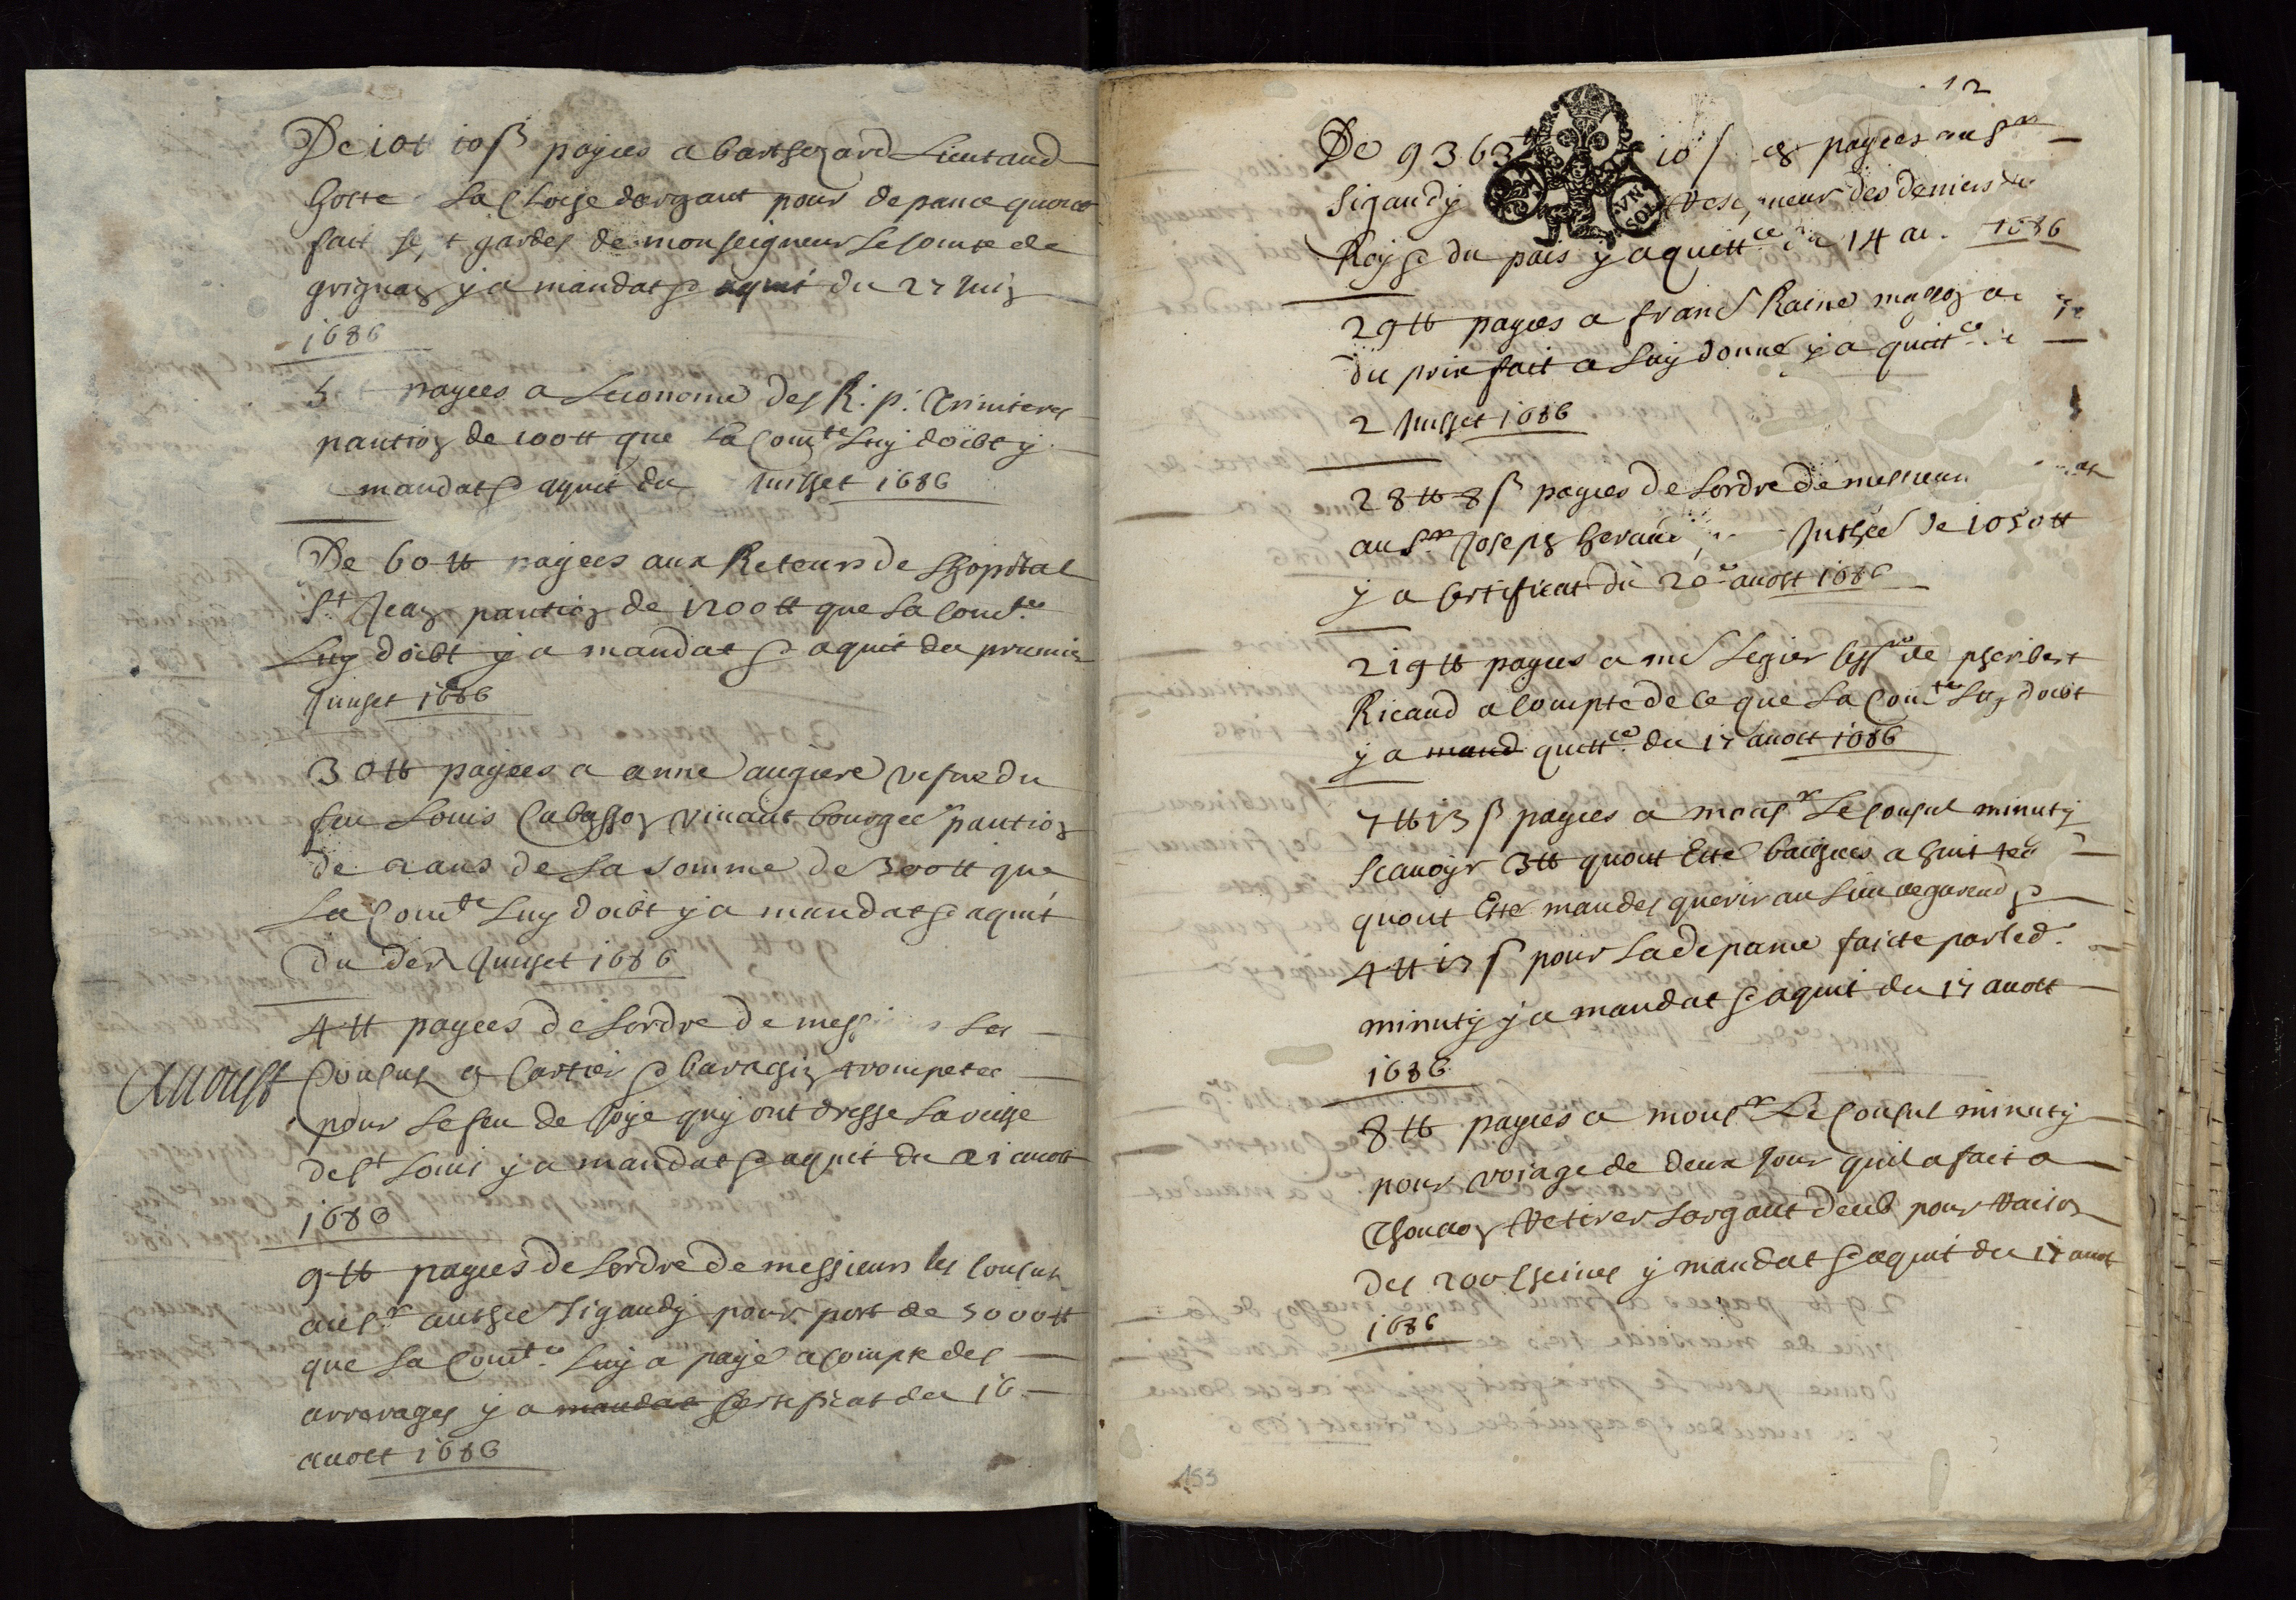 De 10tt 10ß payées a barthezard Lieutaud
hoste La Cloche dargant pour depance quont
fait sept gardes de monseigneur le comte de
grignan y a mandat & aquit du 27 Juin
1686
payées a Leconome des R: p: triniteres
pantion de 100tt que La Comte Luy doibt y
a mandat & aquit du Juillet 1686
De 60tt payées aux Reteurs de Lhopital
St Jean pantion de 1200tt que La Comte
Luy doibt y a mandat & aquit du premier
Juillet 1686
30tt payées a anne augiere vefve du
feu Louis Cabasson vivant bourgeo pantion
de 2 ans de La somme de 300tt que
La Comte Luy doibt y a mandat & aquit
du der Juillet 1686
4tt payées de Lordre de mess Les
Auoust
Consuls a Cartier & baragin trompetes
pour le feu de Joye quy ont dresse La veille
de St Louis y a mandat & aquit du 21 auost
1686
9tt payées de Lordre de messieurs les Consuls
au Sr anthoe Sigaudy pour port de 3000tt
que La Comte Luy a payé a compte des
arrerages y a mandat Certificat du 16
auost 1686
12
De 9363tt 10 s payées au Sr
Sigaudy des deniers du
Roy & du pais y a quittce du 14 1686
29tt payées a frans Raine masson
du prixfait a Luy donné y a quittce
2 Juillet 1686
28tt 8ß payées de Lordre de messieurs
au Sr Joseph Geraud de 1050tt
y a Certificat du 20e auost 1686
219tt payées a me Legier de pheribert
Ricaud a Compte de ce que La Comte Luy doibt
y a mand quittce du 17 auost 1686
7tt 13ß payées a monsr Le Consul minuty
scauoyr 3tt quont Esté baillées a huit
quont Esté mandes querir au Lieu &
4tt 13ß pour La depance faicte par led.
minuty y a mandat & aquit du 17 auost
1686
8tt payées a monsr Le Consul minuty
pour voiage de deux Jour quil a fait a
Thoullon Retirer Largant deub pour Raison
des 200 y mandat & aquit du 17 auost
1686
153